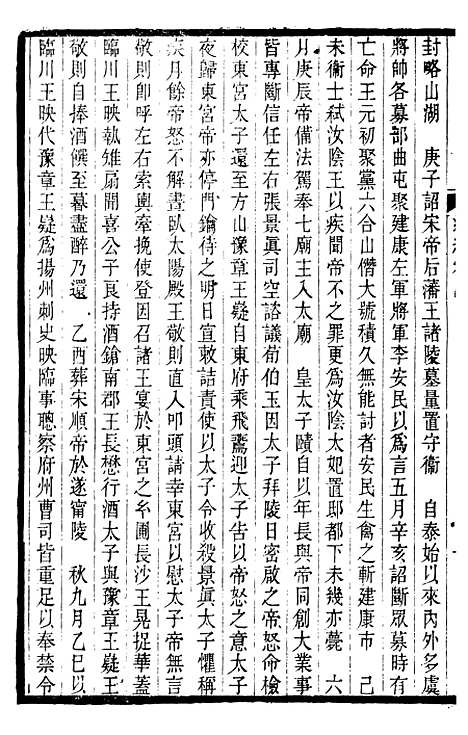 封略山湖　庚子詔宋帝后藩王諸陵墓量置守衞　自泰始以來內外多虞
將帥各募部曲屯聚建康左軍將軍李安民以爲言五月辛亥詔斷眾募時有
亡命王元初聚黨六合山僭大號積久無能討者安民生禽之斬建康市　己
未衞士弑汝陰王以疾聞帝不之罪更爲汝陰太妃置邸都下未幾亦薨　六
月庚辰帝備法駕奉七廟主入太廟　皇太子賾自以年長與帝同創大業事
皆專斷信任左右張景眞司空諮議荀伯玉因太子拜陵日密啟之帝怒命檢
校東宮太子還至方山豫章王嶷自東府乘飛鷰迎太子告以帝怒之意太子
夜歸東宮帝亦停門鑰待之明日宣敕詰責使以太子令收殺景眞太子懼稱
疾月餘帝怒不解晝臥太陽殿王敬則直入叩頭請幸東宮以慰太子帝無言
敬則卽呼左右索輿牽挽使登因召諸王宴於東宮之玄圃長沙王晃捉華蓋
臨川王映執雉扇聞喜公子良持酒鎗南郡王長懋行酒太子與豫章王嶷王
敬則自捧酒饌至暮盡醉乃還　乙酉葬宋順帝於遂甯陵　秋九月乙巳以
臨川王映代豫章王嶷爲揚州刺史映臨事聰察府州曹司皆重足以奉禁令